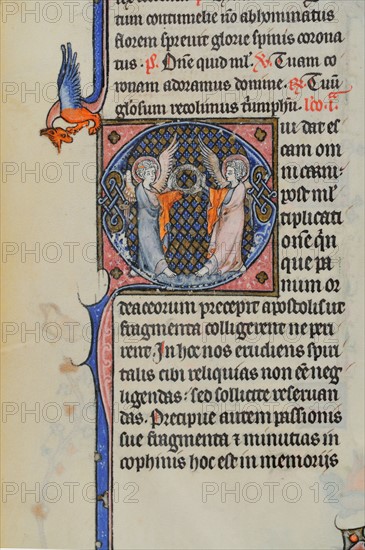 tum contumelie nō abhominatus
florem spreuit glorie spinis corona
tus. Dñe quid ml̄. V. Tuam co
ronam adoramus domine. Tuū
glosum recolimus
ui dat es
cam om
ni carni.
post ml̄
tiplicati
onē qn̄
que pa
num or
deaceorum precepit apostolis ut
fragmenta colligerent ne peri
rent. In hoc nos erudiens spiri
talis cibi reliquias non eē neg
ligendas. sed sollicite reseruan
das. Precipue autem passionis
sue fragmenta & minutias in
cophinis hoc est in memoriis
PHOTO12